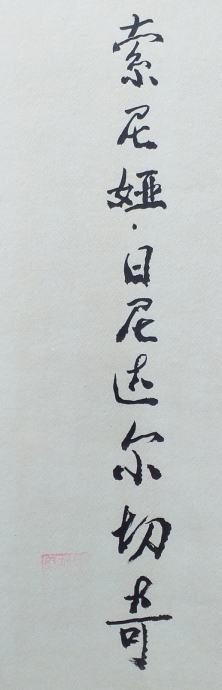 索尼娅·日尼达尔切奇